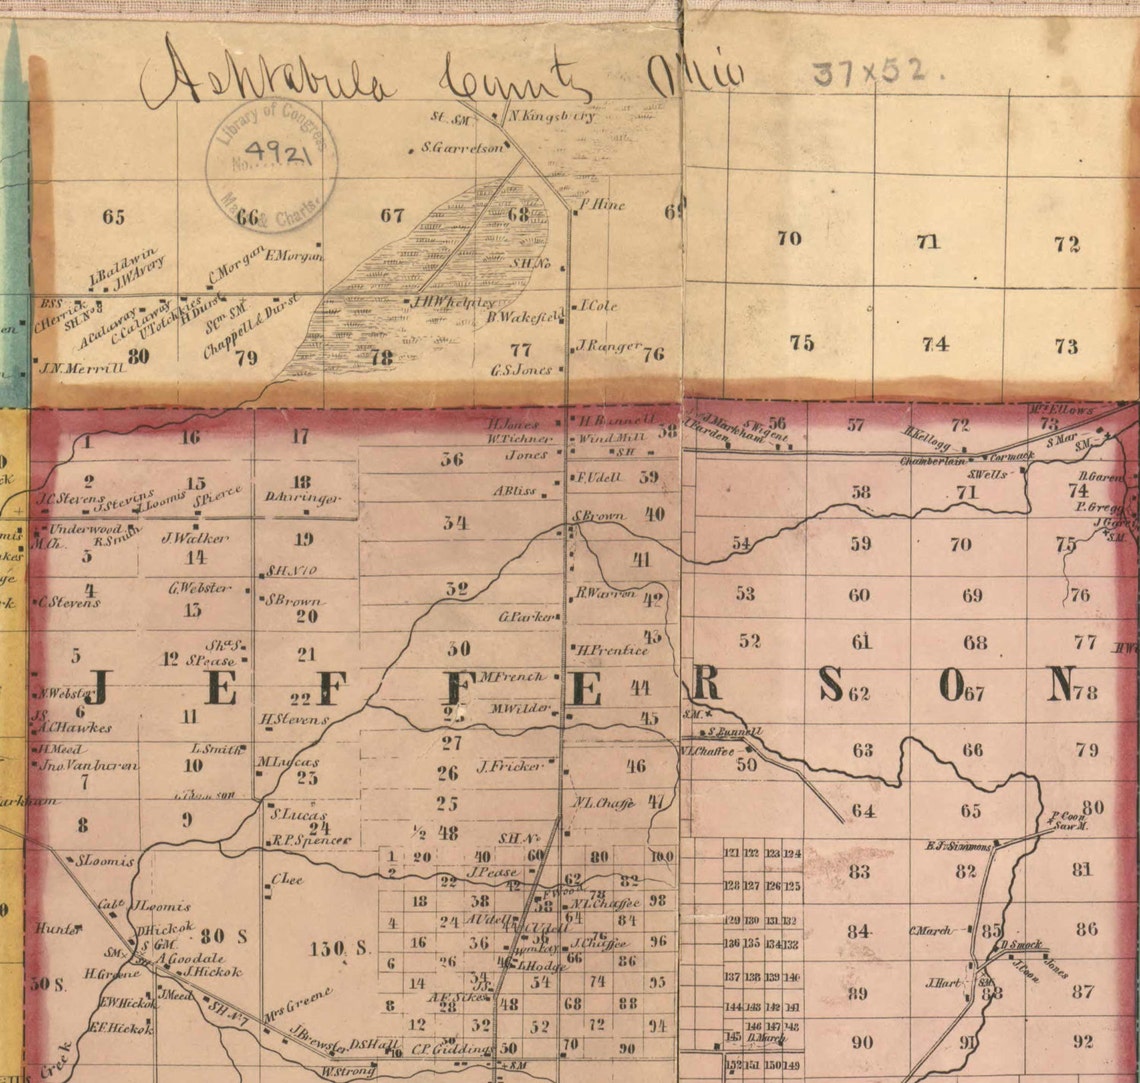 Ashtabula County Ohio 37x52.
Library of Congress
No. 4921
Maps & Charts.
St. SM.
N. Kingsbury
S. Garretson
65
66
67
68
F. Hine
70
71
72
S.H. No
I. Baldwin
J.W. Avery
C. Morgan
E. Morgan
BSS
C. Herrick
S.H. No 8
A. Calaway
C. Calaway
H. Durst
St^m SM.
Chappell & Durst
J.H. Whelpley
B. Wakefield
I. Cole
J.N. Merrill
80
79
78
77
J. Ranger
76
75
74
73
G.S. Jones
H. Jones
H. Bunnell
W. Tichner
Wind Mill
38
Jones
S.H
1
16
17
36
56
57
72
73
Mrs Ellows
J. Markham
S. Wigent
H. Kellogg
Chamberlain
Cormack
S. Mar
S.M.
S. Wells
2
15
18
39
58
71
74
J.C. Stevens
J. Stevins
J. Loomis
S. Pierce
D. Arringer
A. Bliss
E. Udell
P. Gregg
Underwood
R. Smith
J. Walker
34
S. Brown
40
3
14
19
41
54
59
60
70
75
S.M.
4
G. Webster
S.H. No 10
C. Stevens
S. Brown
13
20
32
R. Warren
42
53
69
76
G. Parker
5
12
S. Pease
21
30
H. Prentice
43
52
61
68
77
JEFFERSON
N. Webster
22
M. French
44
62
67
78
6
11
A.C. Hawkes
H. Stevens
M. Wilder
45
S.M.
S. Bunnell
H. Meed
L. Smith
27
N.L. Chaffee
50
63
66
79
Jno. Vanburen
10
M. Lucas
23
26
J. Fricker
46
7
25
N.L. Chaffe
47
64
65
80
8
9
S. Lucas
24
R.P. Spencer
½ 48
S.H. No
P. Coon
Saw M.
S. Loomis
1
20
40
60
80
100
121 122 123 124
83
82
81
C. Lee
2
22
J. Pease
62
82
128 127 126 125
18
38
58
78
98
N.L. Chaffee
J. Loomis
4
24
A. Udell
64
84
129 130 131 132
84
C. March
85
86
Hunter
D. Hickok
S GM.
80 S
130. S.
16
36
56
76
96
J. Chaffee
136 135 134 133
D. Smock
A. Goodale
H. Greene
J. Hickok
6
26
I. Hodge
66
86
J. Coon
Jones
50 S.
14
34
54
74
95
137 138 139 140
J. Hart
89
88
87
E.W. Hickok
J. Meed
S.H. No 7
Mrs Greene
A.F. Sikes
8
28
48
68
88
144 143 142 141
E.F. Hickok
J. Brewster
D.S. Hall
12
32
52
72
94
146 147 148
145
D. March
90
91
92
Creek
10
C.P. Giddings
50
70
90
W. Strong
S.M
152 151 150 149